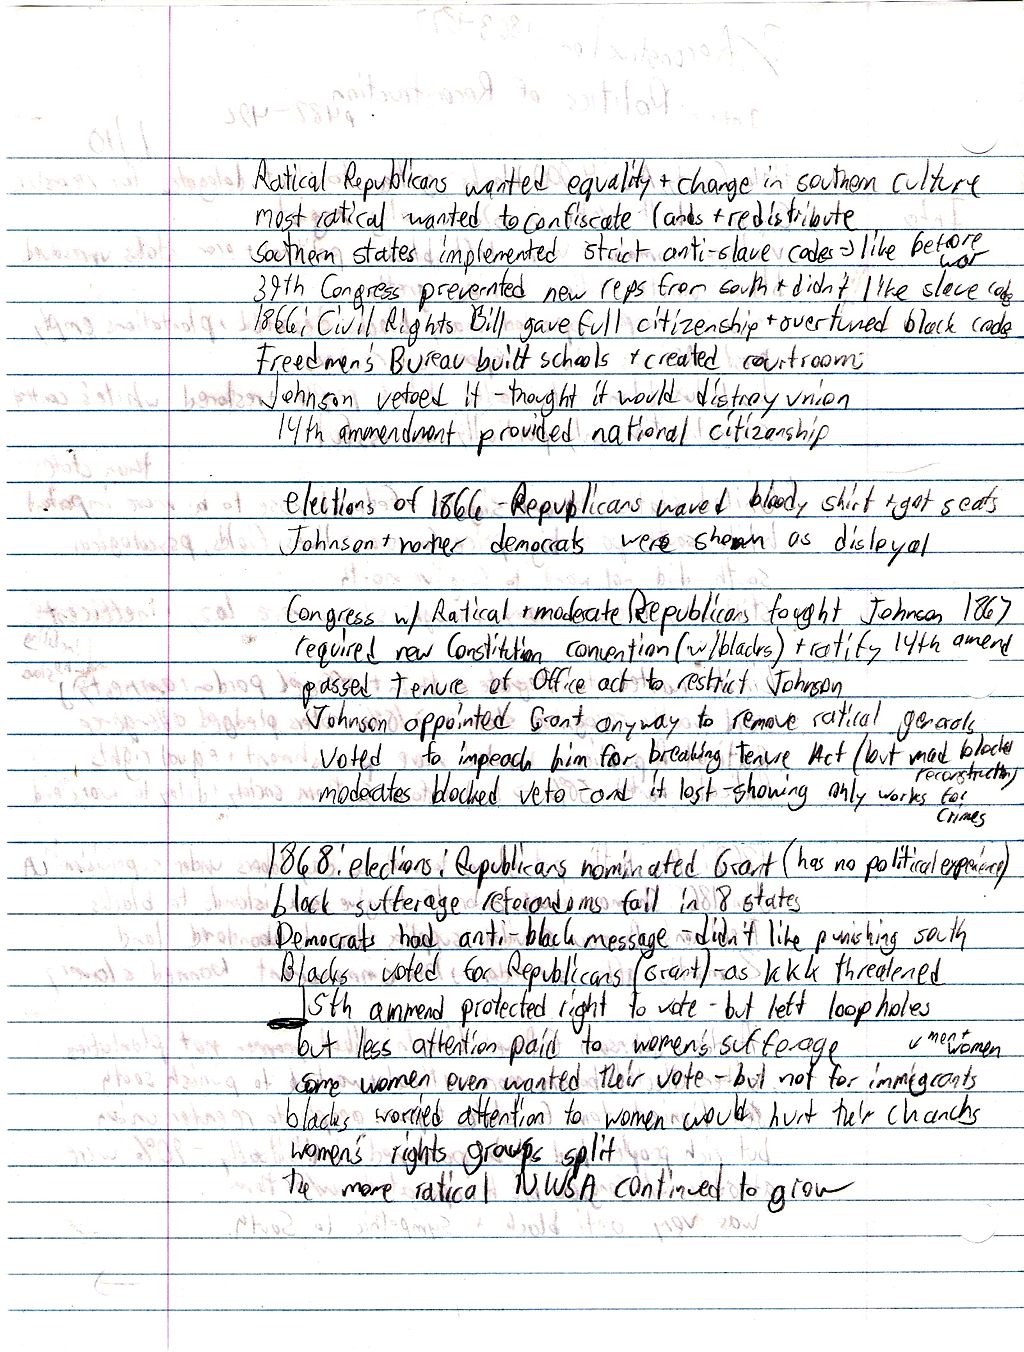 Ratical Republicans wanted equality + change in southern culture
most ratical wanted to confiscate lands + redistribute
southern states implemented strict anti-slave codes → like before war
39th Congress prevernted new reps from south + didn't like slave codes
1866: Civil Rights Bill gave full citizenship + overturned black codes
Freedmen's Bureau built schools + created courtrooms
Johnson vetoed it - thought it would distroy union
14th ammendment provided national citizenship
elections of 1866 - Republicans waved bloody shirt + got seats
Johnson + norther democrats were shown as disloyal
Congress w/ Ratical + moderate Republicans fought Johnson 1867
required new Constitution convention (w/blacks) + ratify 14th amend
passed Tenure of Office act to restrict Johnson
Johnson appointed Grant anyway to remove ratical generals
voted to impeach him for breaking Tenure Act (but mad blocked reconstruction)
moderates blocked veto - and it lost - showing only works for crimes
1868: elections: Republicans nominated Grant (has no political experience)
black sufferage referondoms fail in 8 states
Democrats had anti-black message - didn't like punishing south
Blacks voted for Republicans (Grant) - as KKK threatened
15th ammend protected right to vote - but left loopholes
but less attention paid to women's sufferage men + women
some women even wanted their vote - but not for immigrants
blacks worried attention to women would hurt their chanchs
women's rights groups split
the more ratical NWSA continued to grow